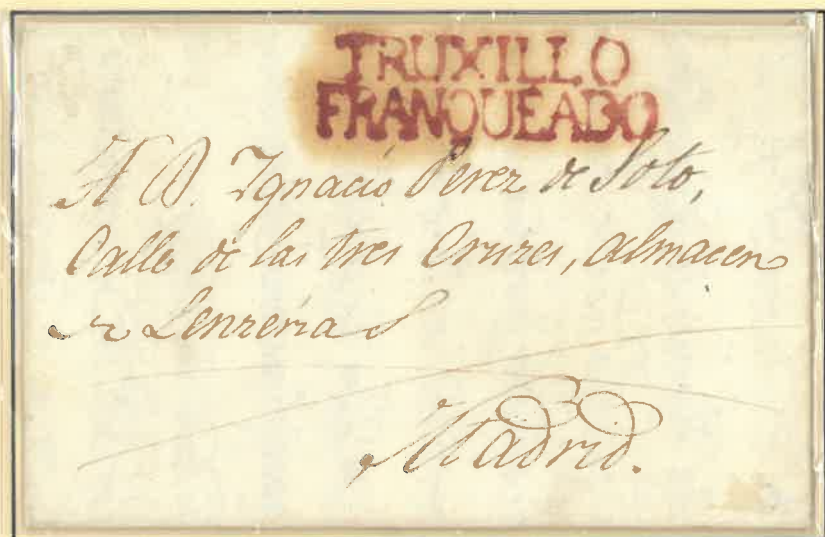 TRUXILLO
FRANQUEADO
A D. Ygnacio Perez de Soto,
Calle de las tres Cruzes, almacen
de Lenzeria
Madrid.